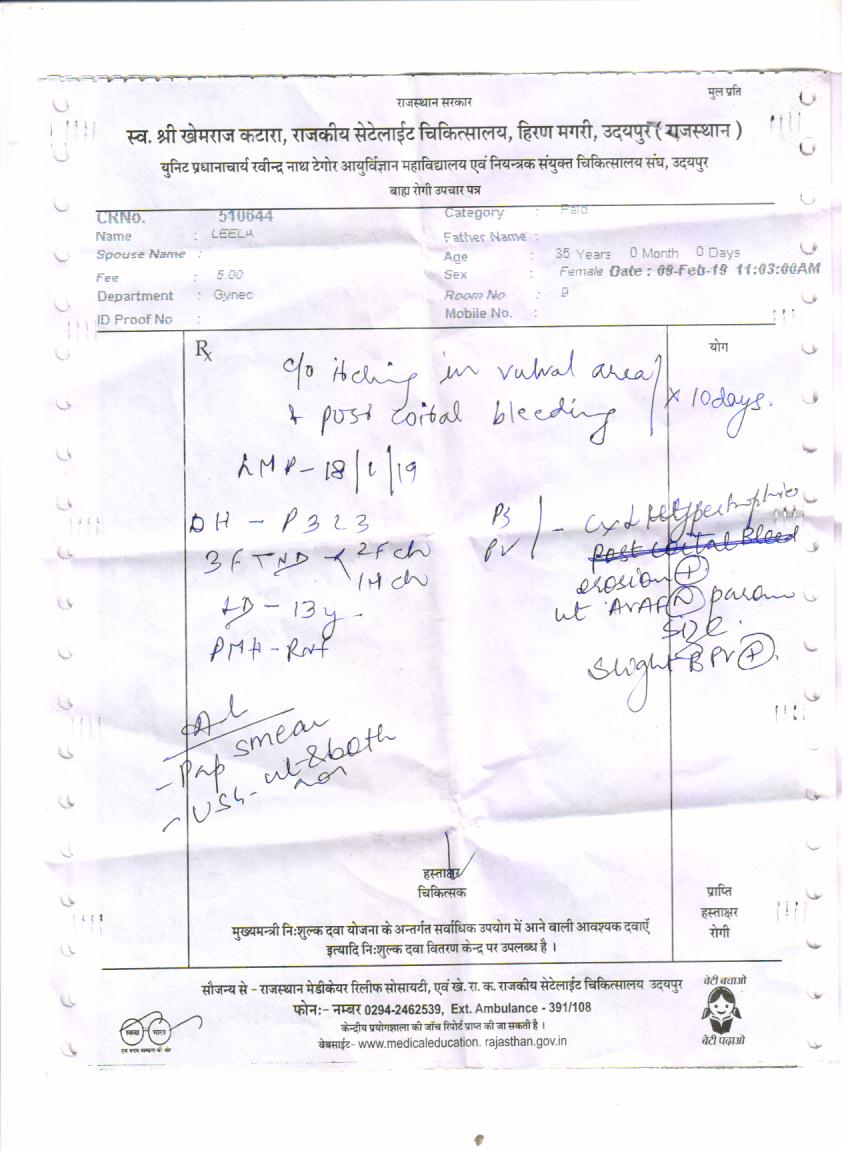 मुल प्रति
राजस्थान सरकार
स्व. श्री खेमराज कटारा, राजकीय सेटेलाईट चिकित्सालय, हिरण मगरी, उदयपुर ( राजस्थान )
युनिट प्रधानाचार्य रवीन्द्र नाथ टेगोर आयुर्विज्ञान महाविद्यालय एवं नियन्त्रक संयुक्त चिकित्सालय संघ, उदयपुर
बाह्य रोगी उपचार पत्र
CRNo. 510644 Category : Paid
Name : LEELA Father Name :
Spouse Name : Age : 35 Years 0 Month 0 Days
Fee : 5.00 Sex : Female Date : 09-Feb-19 11:03:00AM
Department : Gynec Room No : 9
ID Proof No : Mobile No. :
Rx योग
c/o itching in vulval area
+ post coital bleeding x 10 days.
LMP - 18/1/19
OH - P3L3 PS
3 FTND 2 F ch PV - cx hypertrophic
1 M ch Post Coital Bleed
LD - 13 y erosion +
ut AVAF N param
size
PMH - Slight BPV +
Ad
- Pap smear
- USG - ut & both
हस्ताक्षर
चिकित्सक
प्राप्ति
हस्ताक्षर
रोगी
मुख्यमन्त्री नि:शुल्क दवा योजना के अन्तर्गत सर्वाधिक उपयोग में आने वाली आवश्यक दवाएँ
इत्यादि नि:शुल्क दवा वितरण केन्द्र पर उपलब्ध है ।
सौजन्य से - राजस्थान मेडीकेयर रिलीफ सोसायटी, एवं खे. रा. क. राजकीय सेटेलाईट चिकित्सालय उदयपुर
फोन:- नम्बर 0294-2462539, Ext. Ambulance - 391/108
केन्द्रीय प्रयोगशाला की जाँच रिपोर्ट प्राप्त की जा सकती है ।
वेबसाईट- www.medicaleducation. rajasthan.gov.in
स्वच्छ भारत
एक कदम स्वच्छता की ओर
बेटी बचाओ
बेटी पढ़ाओ